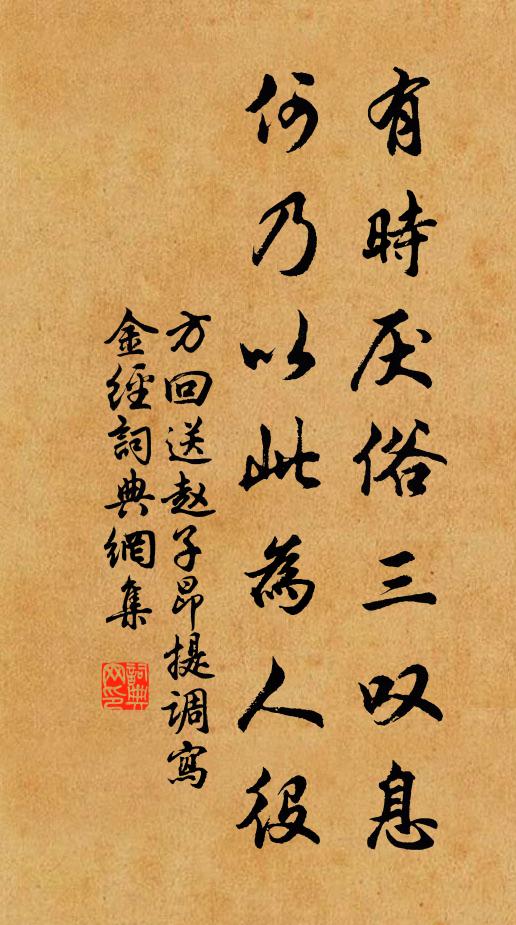 有時厌俗三叹息
何乃以此為人役
方回送赵子昂提调寫
金經詞典網集
詞典网印